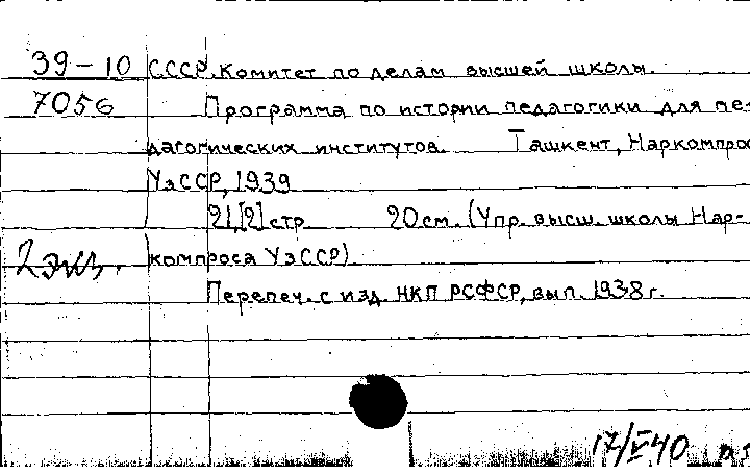 39-10 СССР. Комитет по делам высшей школы.
7056 Программа по истории педагогики для пе-
дагогических институтов. Ташкент, Наркомпрос
УзССР, 1939
21,[2] стр. 20 см. (Упр. высш. школы Нар-
2 экз. компроса УзССР).
Перепеч. с изд. НКП РСФСР, вып. 1938 г.
17/II 40